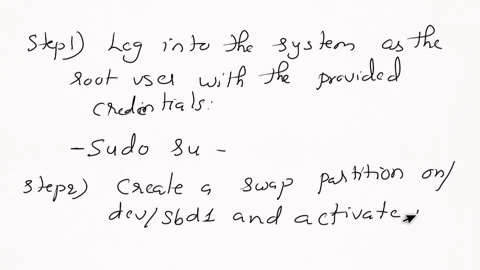 Step1) Log into the system as the
root user with the provided
credentials:
-Sudo su -
step2) Create a swap partition on/
dev/sbd1 and activate.